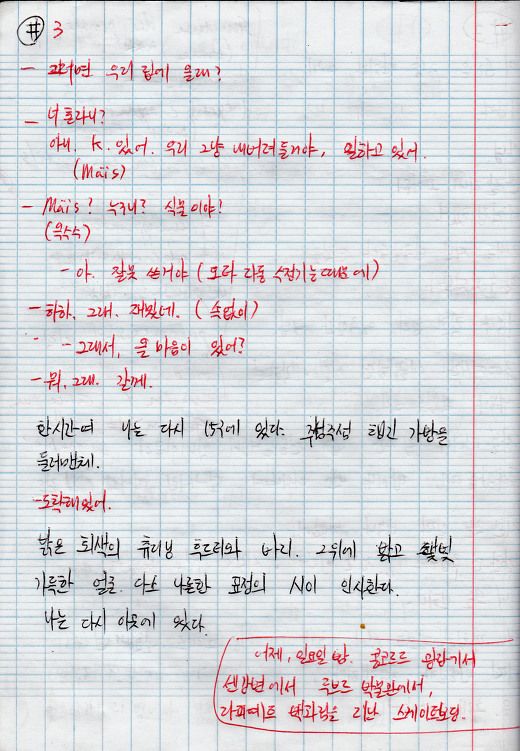 # 3
- 그러면 우리 집에 올래?
- 너 혼자니?
아니. K. 있어. 우리 그냥 내버려둘거야, 일하고 있어.
(Maïs)
- Maïs? 누구니? 식물이야!
(옥수수)
- 아. 잘못 쓴거야 (오타 다들 수정기능 때문에)
- 하하. 그래. 재밌네. (속없이)
- 그래서, 올 마음이 있어?
- 뭐. 그래. 갈게.
한시간여 나는 다시 15구에 있다. 주섬주섬 챙긴 가방을
둘러맨체.
- 도착해있어.
밝은 회색의 츄리닝 후드티와 바지. 그위에 밝고
가득한 얼굴. 다소 나른한 표정의 A이 인사한다.
나는 다시 이곳에 왔다.
어제, 일요일 밤. 콩코르드 광장에서
센강변에서 루브르 박물관에서,
라파예트 백화점을 지난 스케이트보딩.